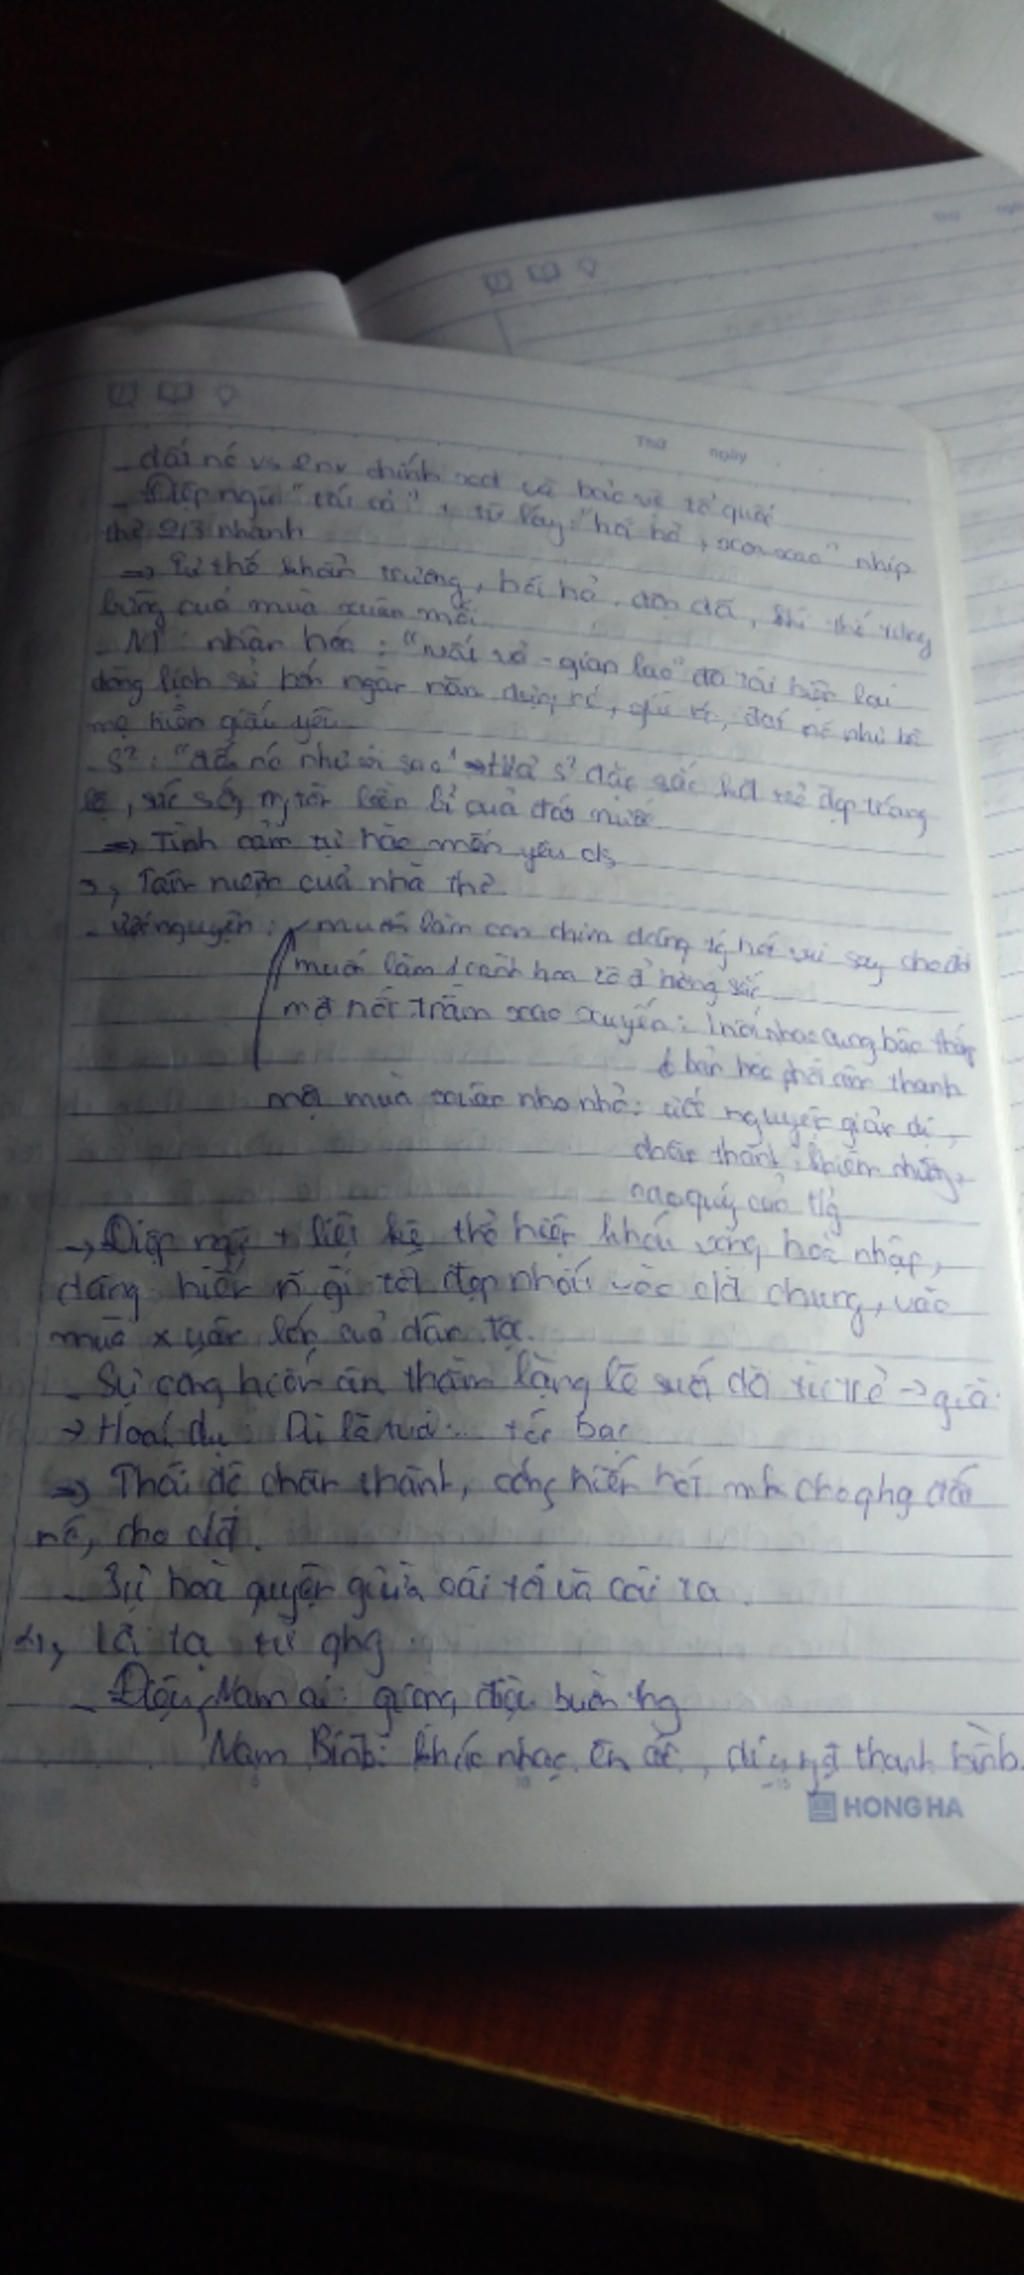 Thứ ngày
- đất nc vs 2 nv chính xd và bảo vệ tổ quốc
- Điệp ngữ "tất cả" + từ láy "hối hả, xôn xao" nhịp
thơ 2/3 nhanh
=> Tư thế khẩn trương, hối hả, dồn dã, khí thế tưng
bừng của mùa xuân mới
- NT: nhân hóa: "vất vả - gian lao" đã tái hiện lại
dòng lịch sử bốn ngàn năm dựng nc, giữ nc, đất nc như bà
mẹ hiền giấu yêu
- S²: "đất nc như vì sao" => là s² đặc sắc vẻ đẹp tráng
lệ, sức sống, trường tồn của đất nước
=> Tình cảm tự hào mến yêu
3, Tâm niệm của nhà thơ
- ước nguyện: muốn làm con chim dâng tg hót vui say cho đời
muốn làm 1 cành hoa toả hương sắc
một nốt trầm xao xuyến: 1 nốt nhạc cung bậc thấp
bản hoà phối âm thanh
một mùa xuân nho nhỏ: ước nguyện giản dị,
chân thành, khiêm nhường,
cao quý của t/g
-> Điệp ngữ + liệt kê thể hiện khát vọng hoà nhập,
dâng hiến n~ gì tốt đẹp nhất vào cđ chung, vào
mùa xuân lớn của dân tộc.
- Sự cống hiến âm thầm lặng lẽ suốt đời từ trẻ -> già
-> Hoán dụ: Dù là tuổi... tóc bạc
=> Thái độ chân thành, cống hiến hết mh cho qhg đất
nc, cho cđ.
- Sự hoà quyện giữa cái tôi và cái ta.
4, Lời ca từ qhg
- Điệu Nam ai: giọng điệu buồn thg
Nam Bình: khúc nhạc êm ái, dịu ngọt thanh bình
HONG HA